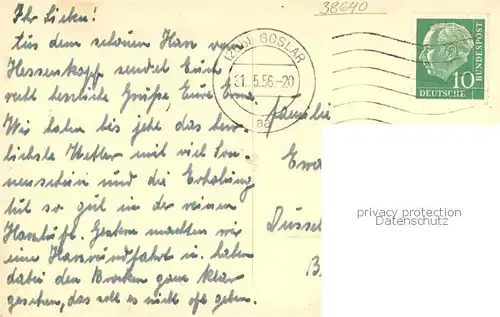 Ihr Lieben!
Aus dem schönen Harz vom
Hessenkopf sendet Euch
recht herzliche Grüße, Eure Erna.
Wir haben bis jetzt das herr-
lichste Wetter mit viel Son-
nenschein und die Erholung
tut so gut in der reinen
Harzluft. Gestern machten wir
eine Harzrundfahrt u. haben
dabei den Brocken ganz klar
gesehen, das soll es nicht oft geben.
38640
GOSLAR
31.5.56.-20
aa
10
DEUTSCHE
BUNDESPOST
Familie
Ewa
Düssel
B
privacy protection
Datenschutz